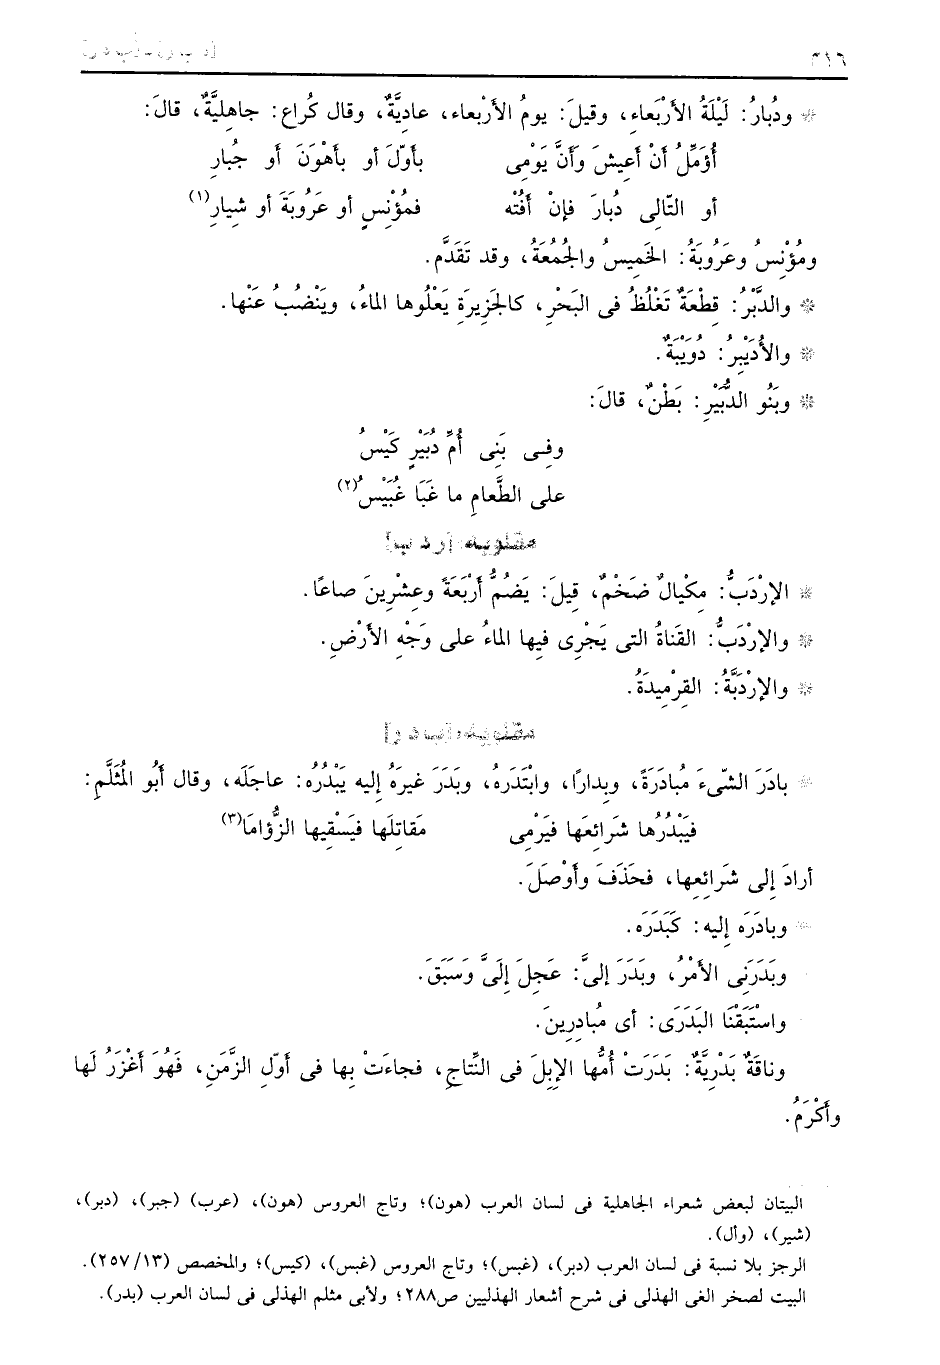 ٣١٦
* ودُبارُ: لَيْلَةُ الأرْبَعاءِ، وقيلَ: يومُ الأرْبعاء، عاديَّةٌ، وقال كُراع: جاهليَّةٌ، قالَ:
أُؤَمِّلُ أنْ أعيشَ وَأنَّ يَوْمِى بأوّلَ أو بأهْوَنَ أو جُبارِ
أو التّالِى دُبارَ فإنْ أفُتْه فمُؤْنِسٍ أو عَرُوبَةَ أو شيارِ(١)
ومُؤْنِسُ وعَرُوبَةُ: الخَميسُ والجُمُعَةُ، وقد تَقَدَّم.
* والدَّبْرُ: قِطْعَةٌ تَغْلُظُ فى البَحْرِ، كالجَزِيرَةِ يَعْلُوها الماءُ، ويَنْضُبُ عَنْها.
* والأُدَيْبِرُ: دُوَيْبَةٌ.
* وبَنُو الدُّبَيْرِ: بَطْنٌ، قالَ:
وفِى بَنِى أُمِّ دُبَيْرٍ كَيْسُ
على الطَّعامِ ما غَبَا غُبَيْسُ(٢)
مقلوبه: [ر د ب]
* الإرْدَبُّ: مِكْيالٌ ضَخْمٌ، قِيلَ: يَضُمُّ أرْبَعَةً وعِشْرِينَ صاعًا.
* والإرْدَبُّ: القَناةُ التى يَجْرِى فيها الماءُ على وَجْهِ الأرْضِ.
* والإرْدَبَّةُ: القِرْمِيدَةُ.
مقلوبه: [ب د ر]
* بادَرَ الشّىءَ مُبادَرَةً، وبِدارًا، وابْتَدَرَهُ، وبَدَرَ غيرَهُ إليه يَبْدُرُه: عاجَلَه، وقال أَبُو المُثَلَّمِ:
فيَبْدُرُها شَرائِعَها فيَرْمِى مَقاتِلَها فيَسْقِيها الزُّؤاما(٣)
أرادَ إلى شَرائِعِها، فحَذَفَ وأوْصَلَ.
* وبادَرَه إليه: كَبَدَرَه.
وبَدَرَنِى الأمْرُ، وبَدَرَ إلىَّ: عَجِلَ إلَىَّ وَسَبَقَ.
واسْتَبَقْنَا البَدَرَى: أى مُبادِرِينَ.
وناقَةٌ بَدْرِيَّةٌ: بَدَرَتْ أمُّها الإبِلَ فى النِّتاجِ، فجاءَتْ بِها فى أوّلِ الزَّمَنِ، فَهُوَ أغْزَرُ لَها
وأكْرَمُ.
البيتان لبعض شعراء الجاهلية فى لسان العرب (هون)؛ وتاج العروس (هون)، (عرب) (جبر)، (دبر)،
(شير)، (وأل).
الرجز بلا نسبة فى لسان العرب (دبر)، (غبس)؛ وتاج العروس (غبس)، (كيس)؛ والمخصص (١٣/ ٢٥٧).
البيت لصخر الغى الهذلى فى شرح أشعار الهذليين ص٢٨٨؛ ولأبى مثلم الهذلى فى لسان العرب (بدر).